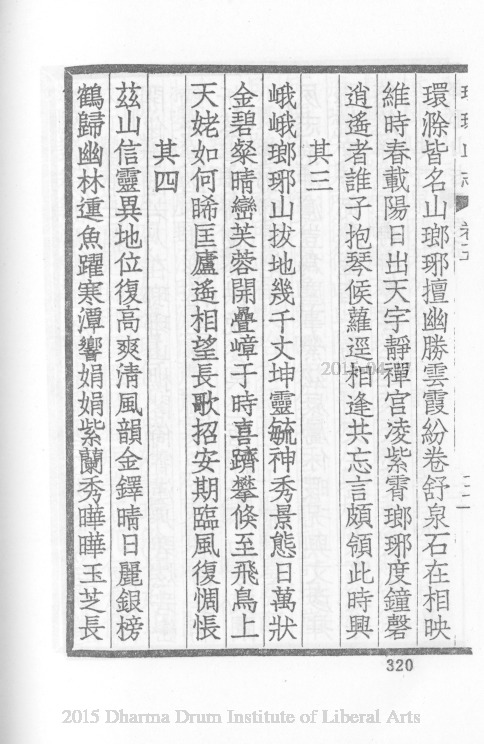 瑯琊山志 卷五 二二
環滁皆名山瑯琊擅幽勝雲霞紛卷舒泉石在相映
維時春載陽日出天宇靜禪宮凌紫霄瑯琊度鐘磬
逍遙者誰子抱琴候蘿逕相逢共忘言頗領此時興
其三
峨峨瑯琊山拔地幾千丈坤靈毓神秀景態日萬狀
金碧粲晴巒芙蓉開疊嶂于時喜躋攀倏至飛鳥上
天姥如何晞匡廬遙相望長歌招安期臨風復惆悵
其四
茲山信靈異地位復高爽清風韻金鐸晴日麗銀榜
鶴歸幽林運魚躍寒潭響娟娟紫蘭秀曄曄玉芝長
320
2015 Dharma Drum Institute of Liberal Arts